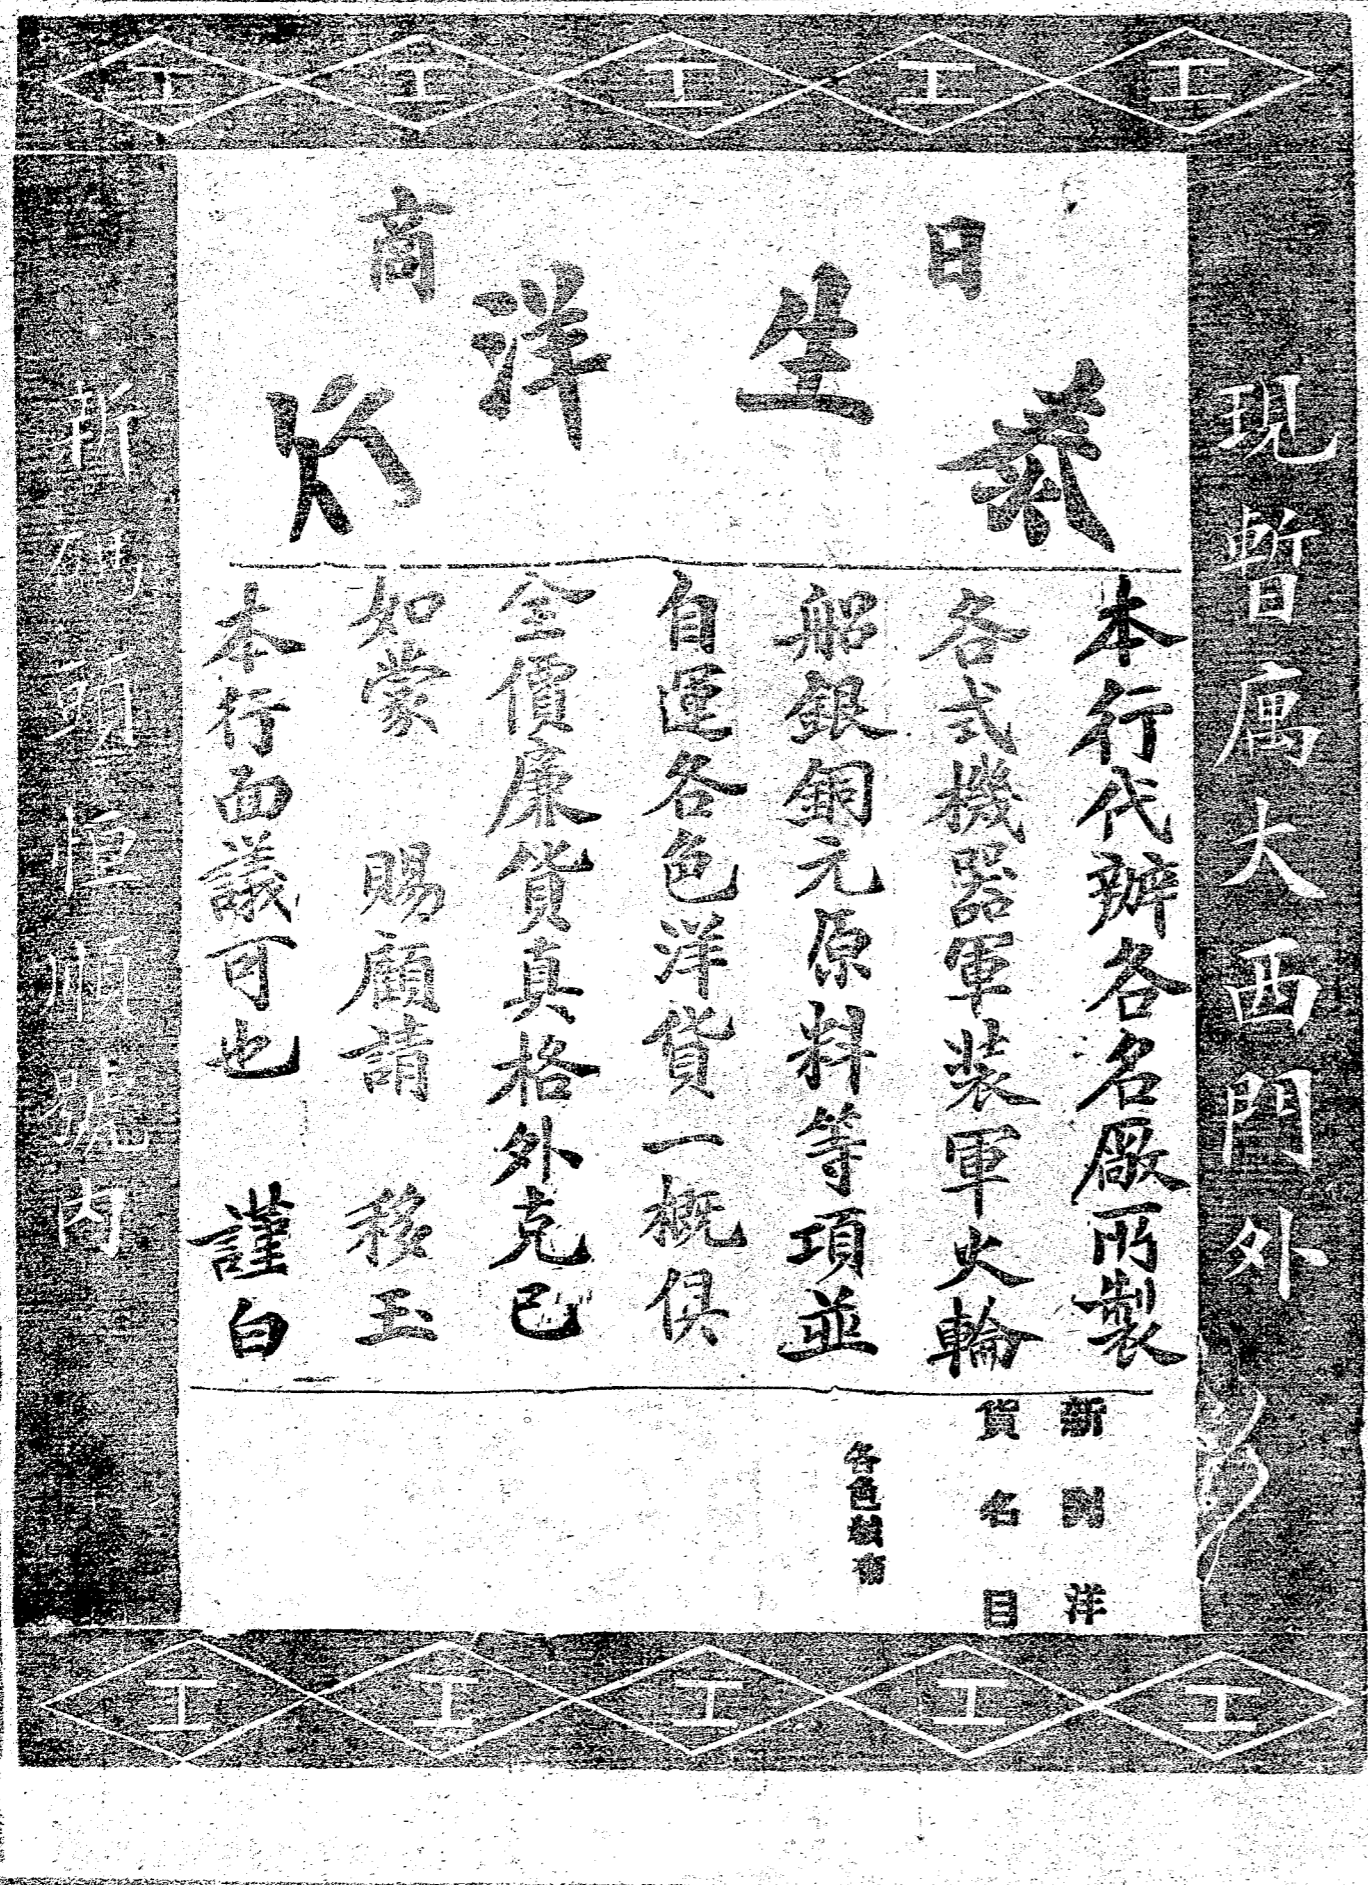 工 工 工 工 工
日商
泰生洋行
現暫寓大西門外
本行代辦各名廠所製
各式機器軍裝軍火輪
船銀銅元原料等項並
自運各色洋貨一概俱
全價廉貨真格外克己
如蒙 賜顧請 移玉
本行面議可也 謹白
新到洋
貨名目
各色
新碼頭恒順號內
工 工 工 工 工